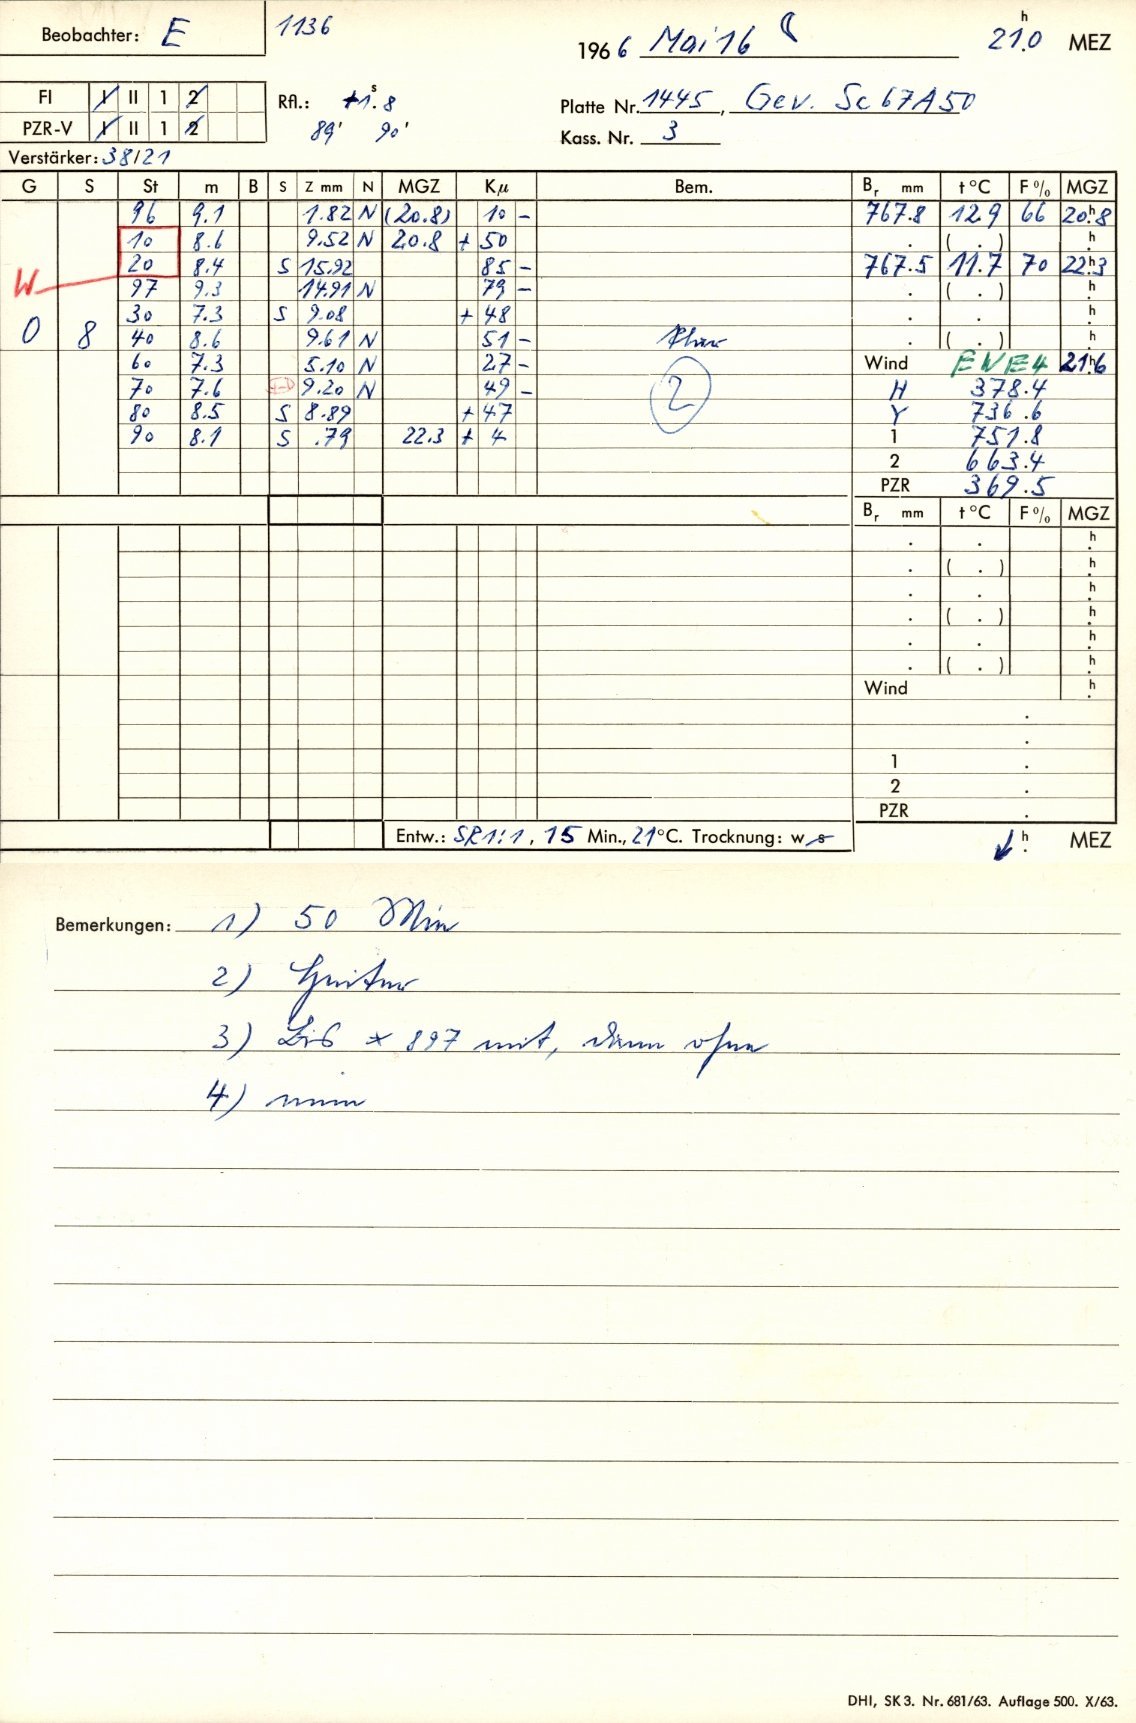 Beobachter: E 1136 1966 Mai 16 21.0 h MEZ
FI I II 1 2 Rfl.: +1.8 s Platte Nr. 1445, Gev. Sc 67A50
PZR-V I II 1 2 89' 90' Kass. Nr. 3
Verstärker: 38/21
G S St m B S Z mm N MGZ Kμ Bem. Br mm t °C F % MGZ
96 9.1 1.82 N (20.8) 10 - 767.8 12.9 66 20.8 h
10 8.6 9.52 N 20.8 + 50 . ( . ) h .
W 20 8.4 S 15.92 85 - 767.5 11.7 70 22.3 h
97 9.3 14.91 N 79 - . ( . ) h .
0 8 30 7.3 S 9.08 + 48 . . h .
40 8.6 9.61 N 51 - . ( . ) h .
60 7.3 5.10 N 27 - Wind ENE4 21.6 h
70 7.6 9.20 N 49 - 2 H 378.4
80 8.5 S 8.89 + 47 Y 736.6
90 8.1 S .79 22.3 + 4 1 751.8
2 663.4
PZR 369.5
Br mm t °C F % MGZ
. . h .
. ( . ) h .
. . h .
. ( . ) h .
. . h .
. ( . ) h .
Wind h .
.
.
1 .
2 .
PZR .
Entw.: SR1:1, 15 Min., 21 °C. Trocknung: w s h . MEZ
Bemerkungen: 1) 50 Min
2) Heiter
3) Bis * 897 mit, dann ohne
4) nein
DHI, SK 3. Nr. 681/63. Auflage 500. X/63.